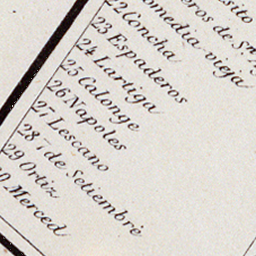 de S.n
omedia vieja
22 Concha
23 Espaderos
24 Lartiga
25 Calonge
26 Napoles
27 Lescano
28 7 de Setiembre
29 Ortiz
Merced